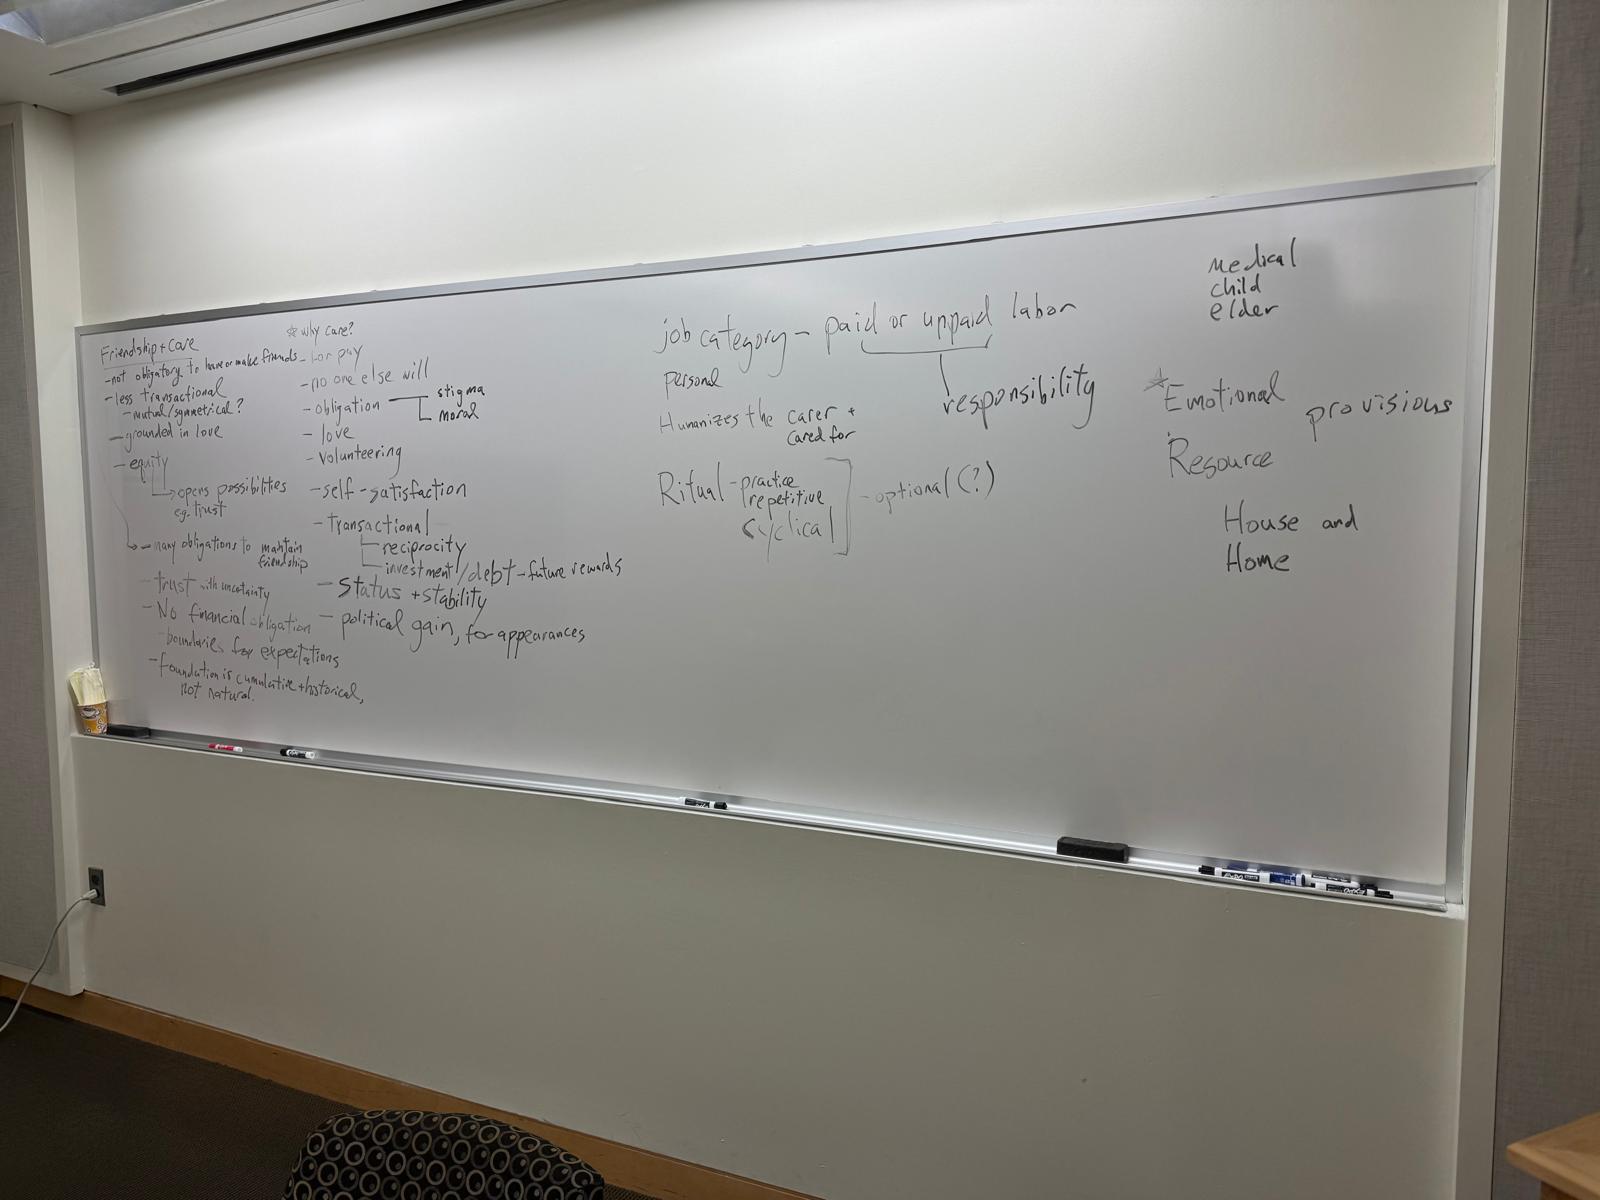 Friendship + Care
- not obligatory to have or make friends
- less transactional
- mutual/symmetrical?
- grounded in love
- equity
→ opens possibilities
e.g. trust
→ - many obligations to maintain
friendship
- trust with uncertainty
- No financial obligation
- boundaries for expectations
- foundation is cumulative + historical,
not natural.
☆ why care?
- for pay
- no one else will
- obligation
stigma
moral
- love
- volunteering
- self-satisfaction
- transactional
reciprocity
investment/debt - future rewards
- status + stability
- political gain, for appearances
job category - paid or unpaid labor
responsibility
personal
Humanizes the carer +
cared for
Ritual - practice
repetitive
cyclical
- optional (?)
Medical
child
elder
☆ Emotional
provisions
Resource
House and
Home
EXPO